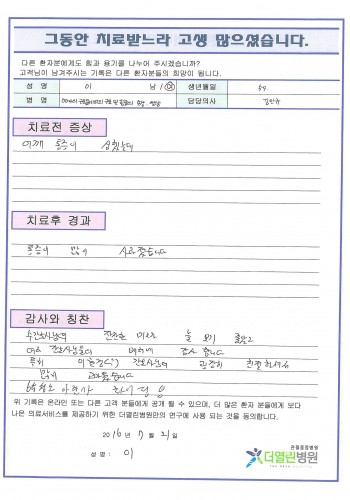 그동안 치료받느라 고생 많으셨습니다.
다른 환자분에게도 힘과 용기를 나누어 주시겠습니까?
고객님이 남겨주시는 기록은 다른 환자분들의 희망이 됩니다.
성 명 이 남 / 여 생년월일
병 명 담당의사
치료전 증상
어깨 통증이 심했는데
치료후 경과
통증이 많이 사라졌습니다
감사와 칭찬
수간호사님의 잔잔한 미소가 늘 보기 좋았고
여러 간호사님들의 배려에 감사 합니다
특히 간호사님의 굉장히 친절하셔서
많이 고마웠습니다
위 기록은 온라인 또는 다른 고객 분들에게 공개 될 수 있으며, 더 많은 환자 분들에게 보다
나은 의료서비스를 제공하기 위한 더열린병원만의 연구에 사용 되는 것을 동의합니다.
2016년 7월 21일
성 명 : 이
관절중점병원
더열린병원